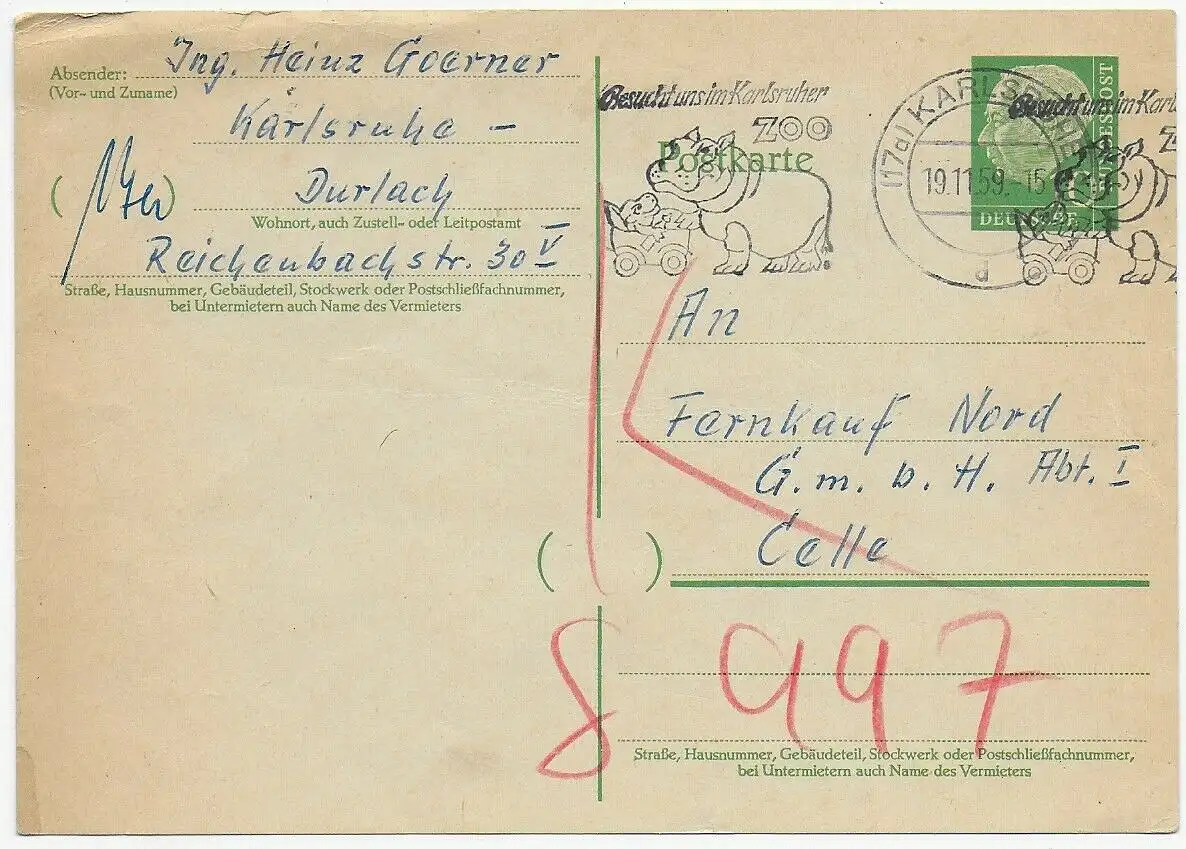 Absender: Ing. Heinz Goerner
(Vor- und Zuname)
Karlsruhe -
( ) Durlach
Wohnort, auch Zustell- oder Leitpostamt
Reichenbachstr. 30 V
Straße, Hausnummer, Gebäudeteil, Stockwerk oder Postschließfachnummer,
bei Untermietern auch Name des Vermieters
Besucht uns im Karlsruher
ZOO
Postkarte
(17a) KARLSRUHE
19.11.59.-15
d
Besucht uns im Karl
BUNDESPOST
DEUTSCHE
An
Fernkauf Nord
G.m.b.H. Abt. I
( ) Celle
8 997
Straße, Hausnummer, Gebäudeteil, Stockwerk oder Postschließfachnummer,
bei Untermietern auch Name des Vermieters